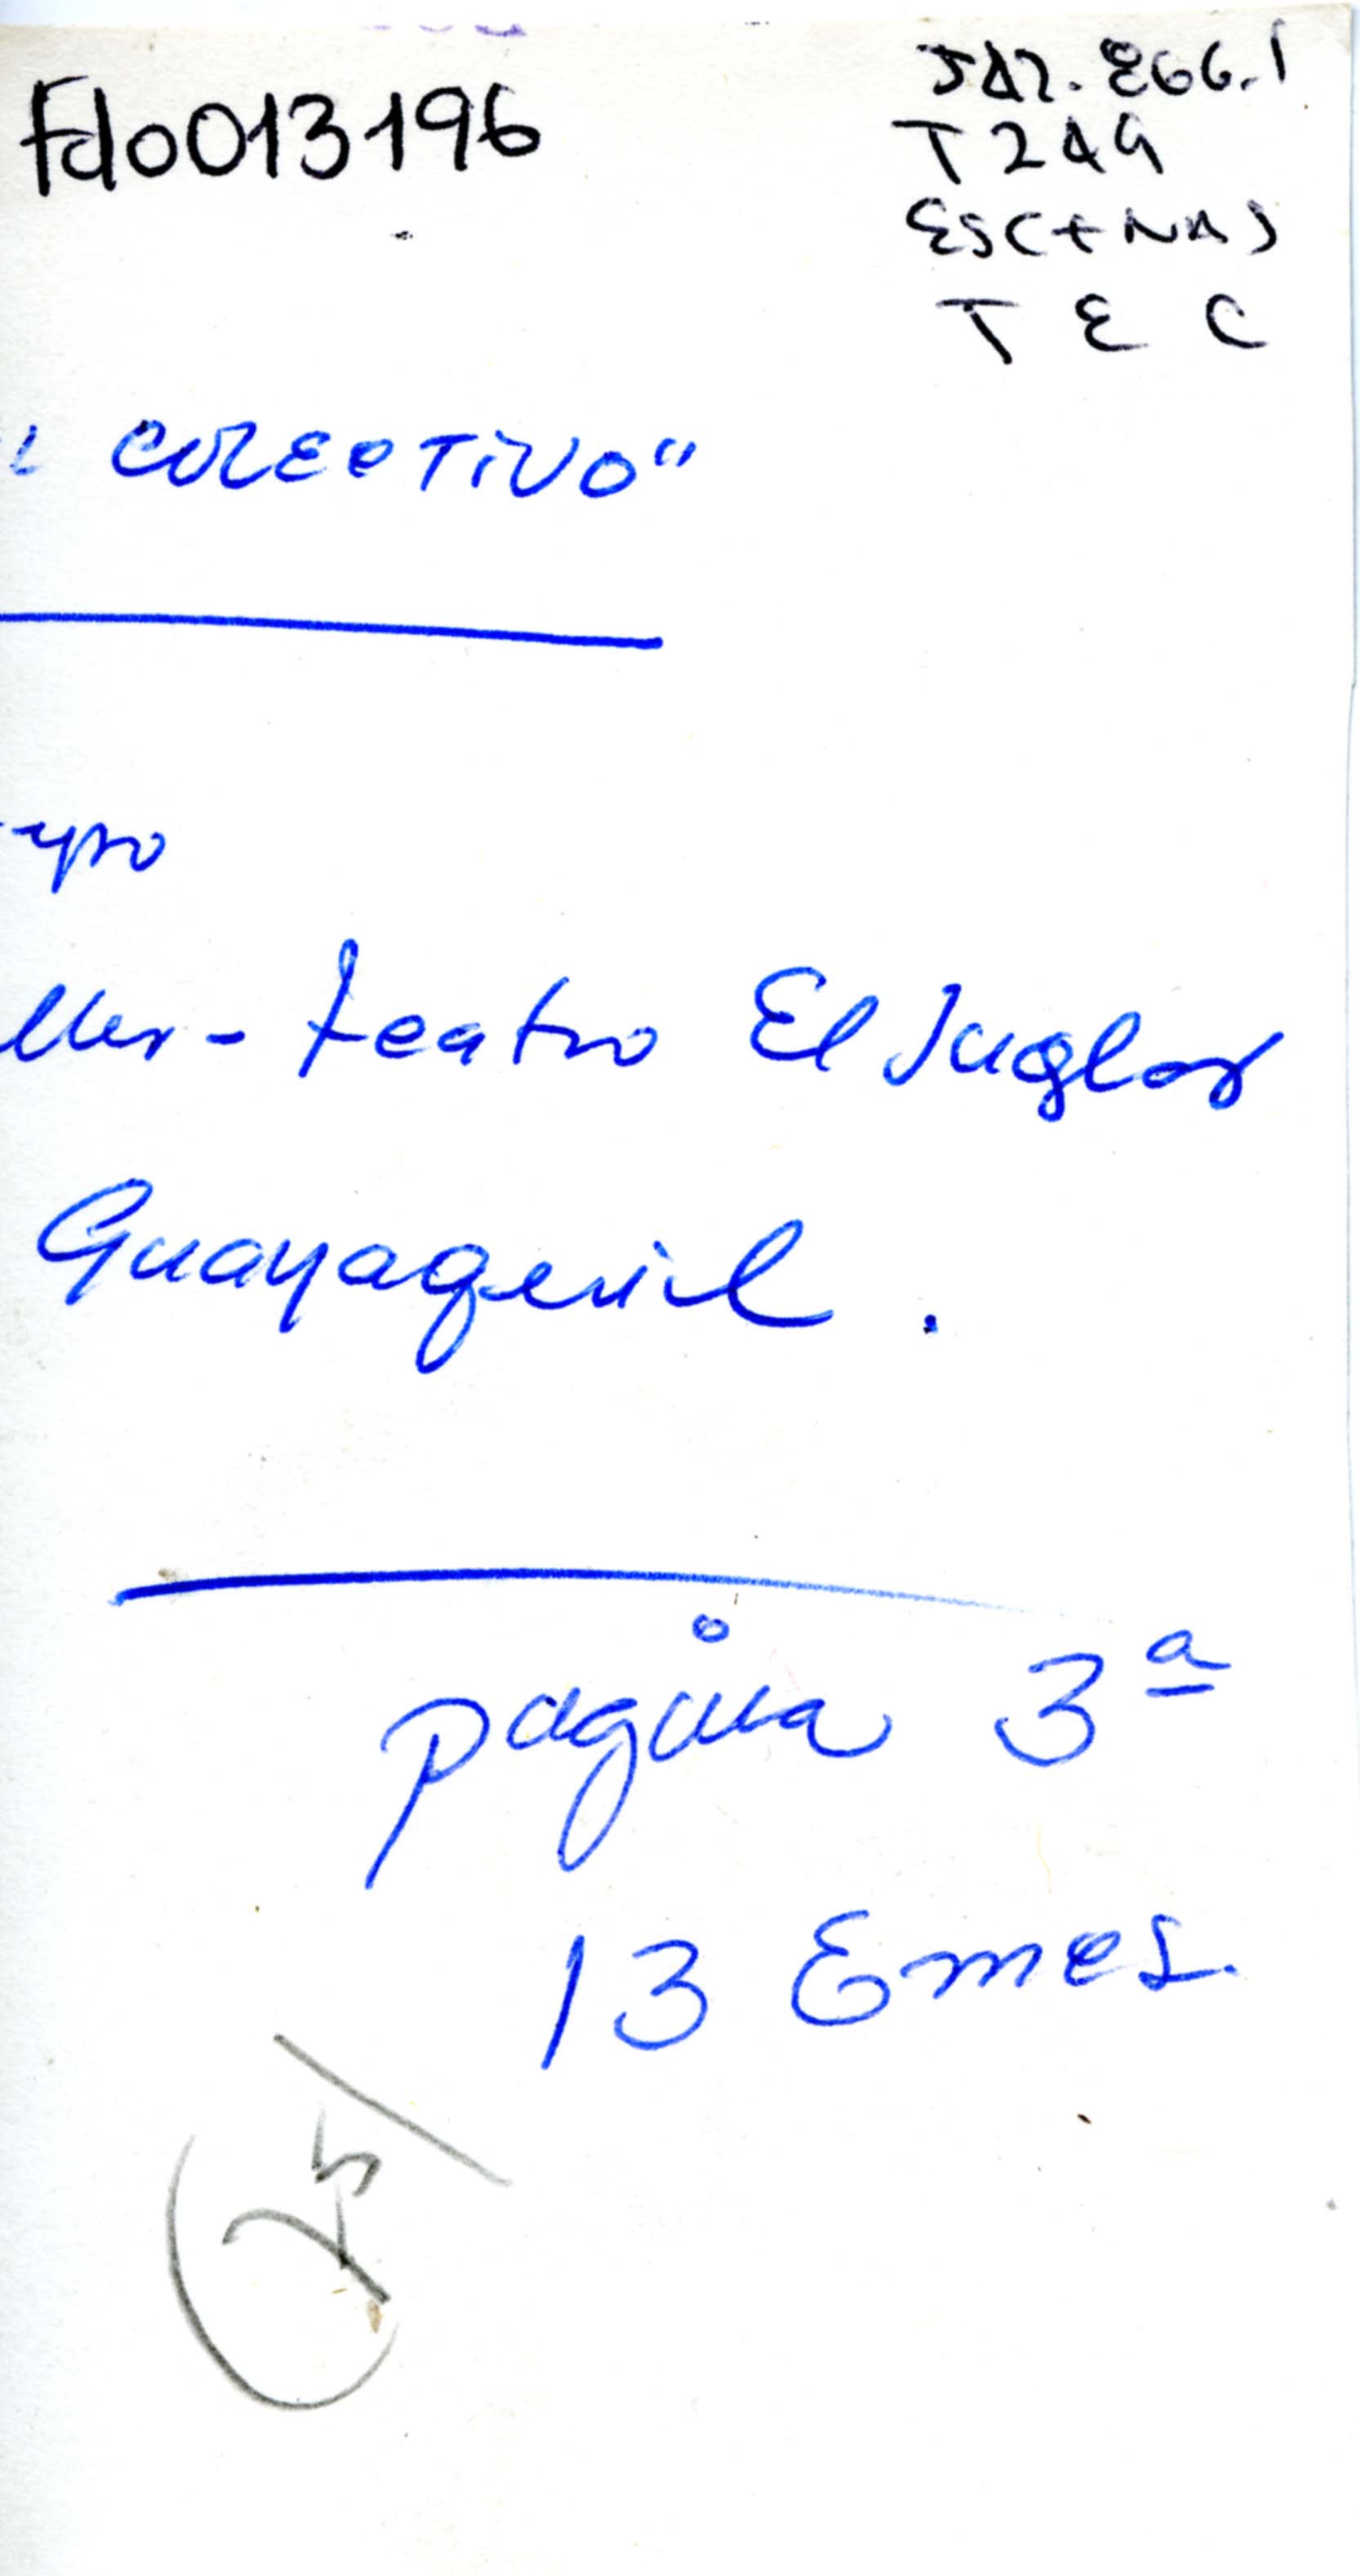 Fdo013196
T249
ESCENAS
TEC
COLECTIVO"
ller-teatro El Juglar
Guayaquil.
página 3ª
13 Emes.